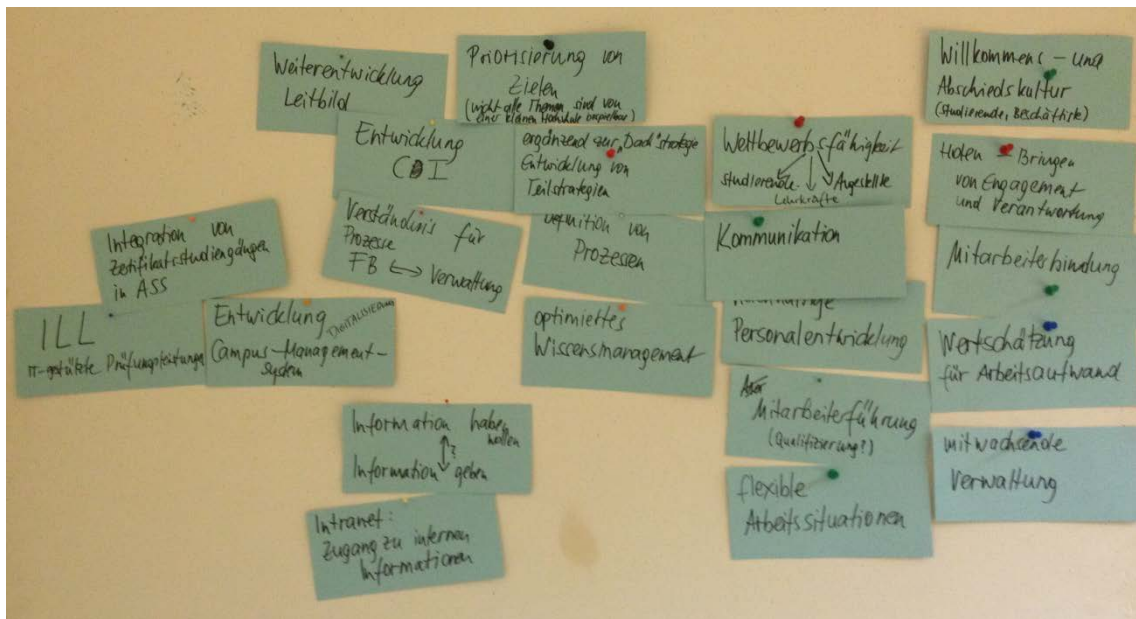 Weiterentwicklung
Leitbild
Priorisierung von
Zielen
(nicht alle Themen sind von
einer kleinen Hochschule bespielbar)
Willkommens- und
Abschiedskultur
(Studierende, Beschäftigte)
Entwicklung
CI
ergänzend zur „Dach"strategie
Entwicklung von
Teilstrategien
Wettbewerbsfähigkeit
Studierende
Lehrkräfte
Angestellte
Holen Bringen
von Engagement
und Verantwortung
Integration von
Zertifikatsstudiengängen
in ASS
Verständnis für
Prozesse
FB ↔ Verwaltung
Definition von
Prozessen
Kommunikation
Mitarbeiterbindung
ILL
IT-gestützte Prüfungsleistungen
Entwicklung
DIGITALISIERUNG
Campus-Management-
System
optimiertes
Wissensmanagement
Personalentwicklung
Wertschätzung
für Arbeitsaufwand
Information haben
wollen
?
Information geben
Mitarbeiterführung
(Qualifizierung?)
mitwachsende
Verwaltung
Intranet:
Zugang zu internen
Informationen
flexible
Arbeitssituationen